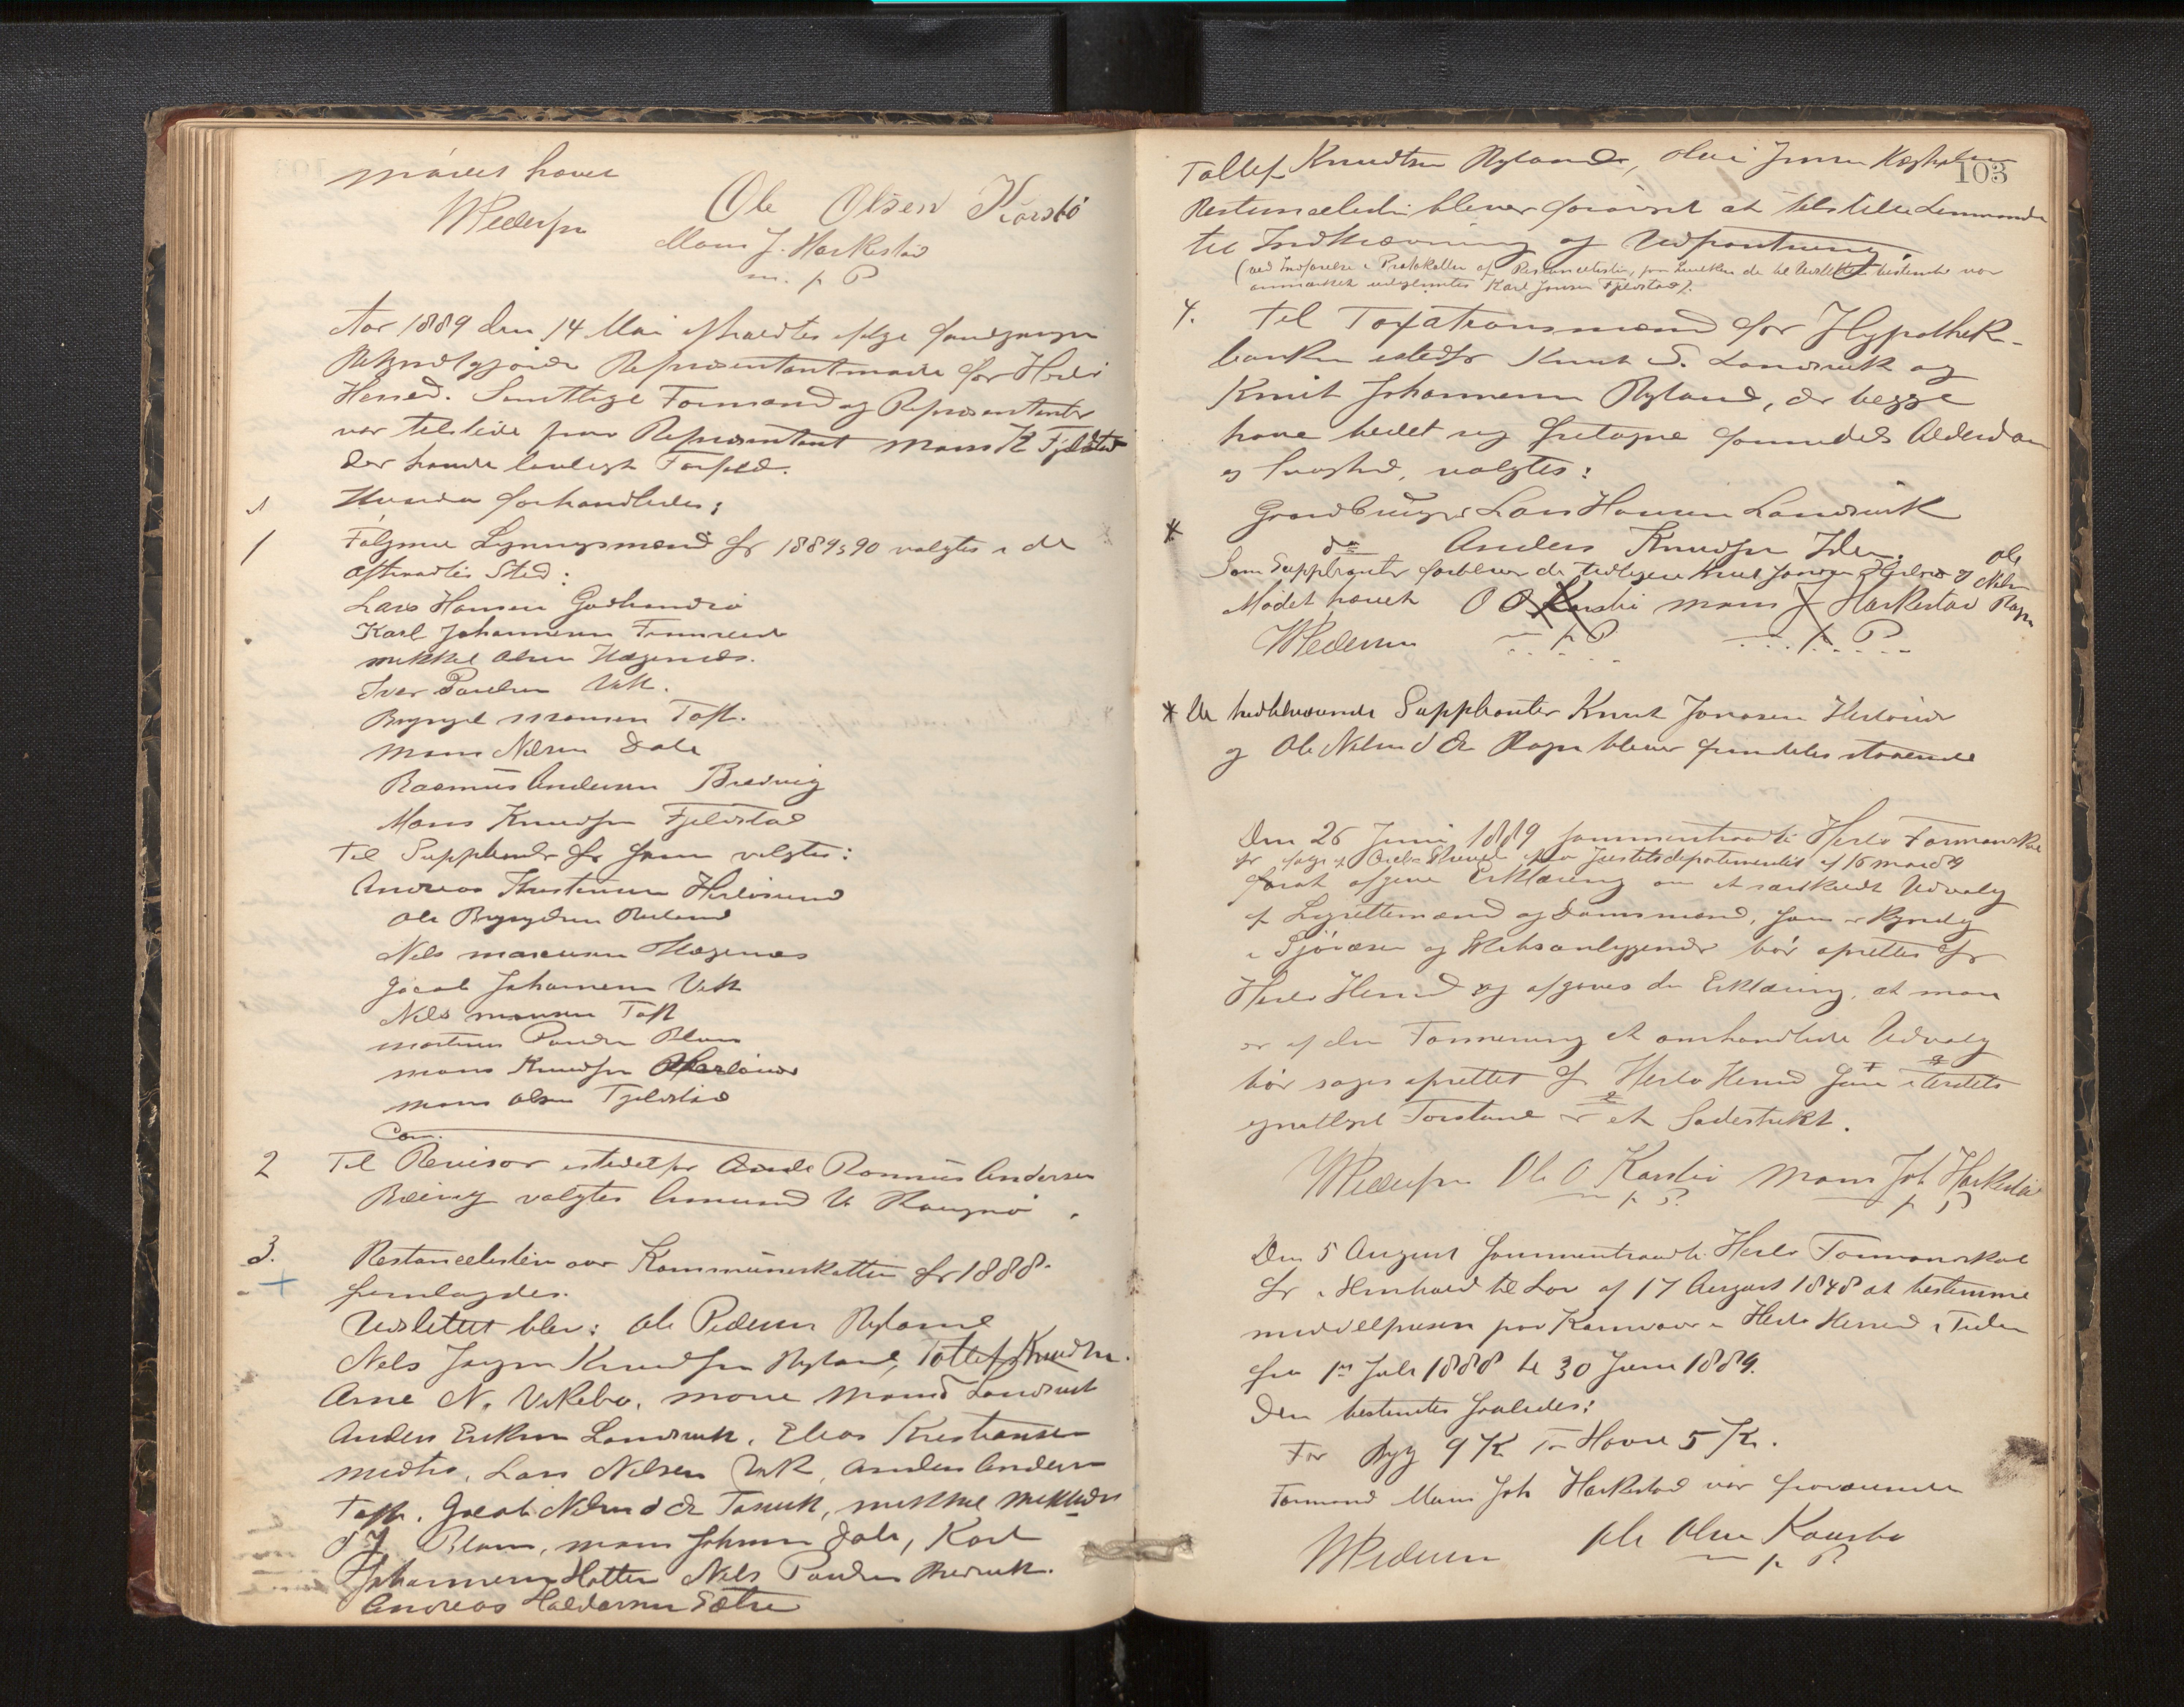 Mødet hævet
WPedersen Ole Olsen Karsbø
Mons J. Harkestad
m. p P
Aar 1889 den 14 Mai afholdtes ifølge foregaaende
Bekjendtgjørelse Repræsentantmøde for Herlø
Herred. Samtlige Formænd og Repræsentanter
var tilstede paa Repræsentant Mons K Fjeldstad
der havde lovligt Forfald.
Hvorda forhandledes:
1 Følgende Ligningsmænd for 1889 & 90 valgtes i de
aftraadtes Sted:
Lars Hansen
Karl Johannesen
Mikkel Olsen Hægernes.
Iver Paulsen Vik.
Brynjel Monsen Toft.
Mons Nilsen Dale
Rasmus Andersen Bredvig
Mons Knudsen Fjeldstad
Til Suppleanter for dem valgtes:
Andreas Kristensen Herløsund
Ole Brynjelsen
Nils Monsen Hægernes
Jacob Johannesen Vik
Nils Monsen Toft
Martinus Paulsen Blom
Mons Knudsen Herløver
Mons Olsen Fjeldstad
Com.
2 Til Revisor istedetfor Rasmus Andersen
valgtes Amund
3. Restancelisten over Kommuneskatten for 1888
fremlagdes.
Udslettet blev: Ole Pedersen Nyland
Nels Knudsen Nyland, Tollef Knudsen.
Arne N. Vikebø, Mons Landsvik
Anders Eriksen Landsvik, Elias Kristiansen
Midtø, Lars Nilsen Vik, Anders Andersen
Toft. Jacob Nilsen d Æ Tarvik, Mikkel Mikkelsen
d Y Blom, Mons Johnsen Dale, Karl
Johannesen Hatten Nils Paulsen Bredvik.
Andreas Haldorsen Sætre
103
Tollef Knudtsen Nyland, Jensen
Restancelisten blever forøvrigt at tilstille Lensmanden
til Inddrivning og Udpantning.
(ved Indførelse i Protokollen af Restancelisten, paa hvilken de til Udslettelse bestemte var
anmærket Karl Jonsen Fjeldstad).
4. Til Taxationsmænd for Hypothek-
banken istedfor Knut S. Landsvik og
Knut Johannesen Nyland, der begge
have bedet sig fritagne formedels Alderdom
og Svaghed, valgtes:
Gaardbruger Lars Hansen Landsvik
* do Anders Knudsen Iden.
Som Suppleanter forbliver de tidligere Knut Jonsen og Ole Nilsen
Mødet hævet O O Karsbø Mons J Harkestad
WPedersen m. p P m. p. P.
* De hidtilværende Suppleanter Knut Jonasen Herløver
og Ole Nilsen d Æ blever fremdeles staaende
Den 26 Juni 1889 sammentraadte Herlø Formandskab
for ifølge Skrivelse fra Justitsdepartementet af 16
forat afgive Erklæring om et særskildt Udvalg
af Lagrettemænd og Domsmænd, som er kyndig
i Sjøvæsen og Skibsanliggender bør oprettes for
Herlø Herred og afgaves den Erklæring, at man
er af den Formening et omhandlede Udvalg
bør søges oprettet for Herlø Herred som i Herredets
egentligst Forstand er et Sødistrikt.
WPedersen Ole O Karsbø Mons Joh Harkestad
m p P. p P
Den 5 August sammentraadte Herlø Formandskab
for i Henhold til Lov af 17 August 1848 at bestemme
middelprisen paa Kornvarer i Herlø Herred i Tiden
fra 1ste Juli 1888 til 30 Juni 1889.
Den bestemtes saaledes:
For Byg 9 Kr For Havre 5 Kr.
Formand Mons Joh Harkestad var fraværende
WPedersen Ole Olsen Karsbø
m p P